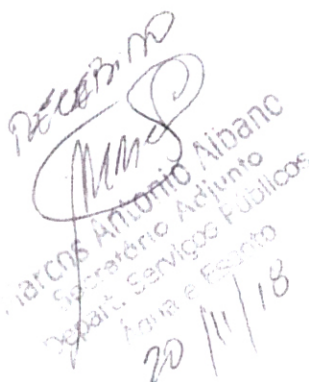 RECEBIDO
Marcos Antonio Albano
Secretário Adjunto
Depart. Serviços Públicos
Água e Esgoto
20/11/18